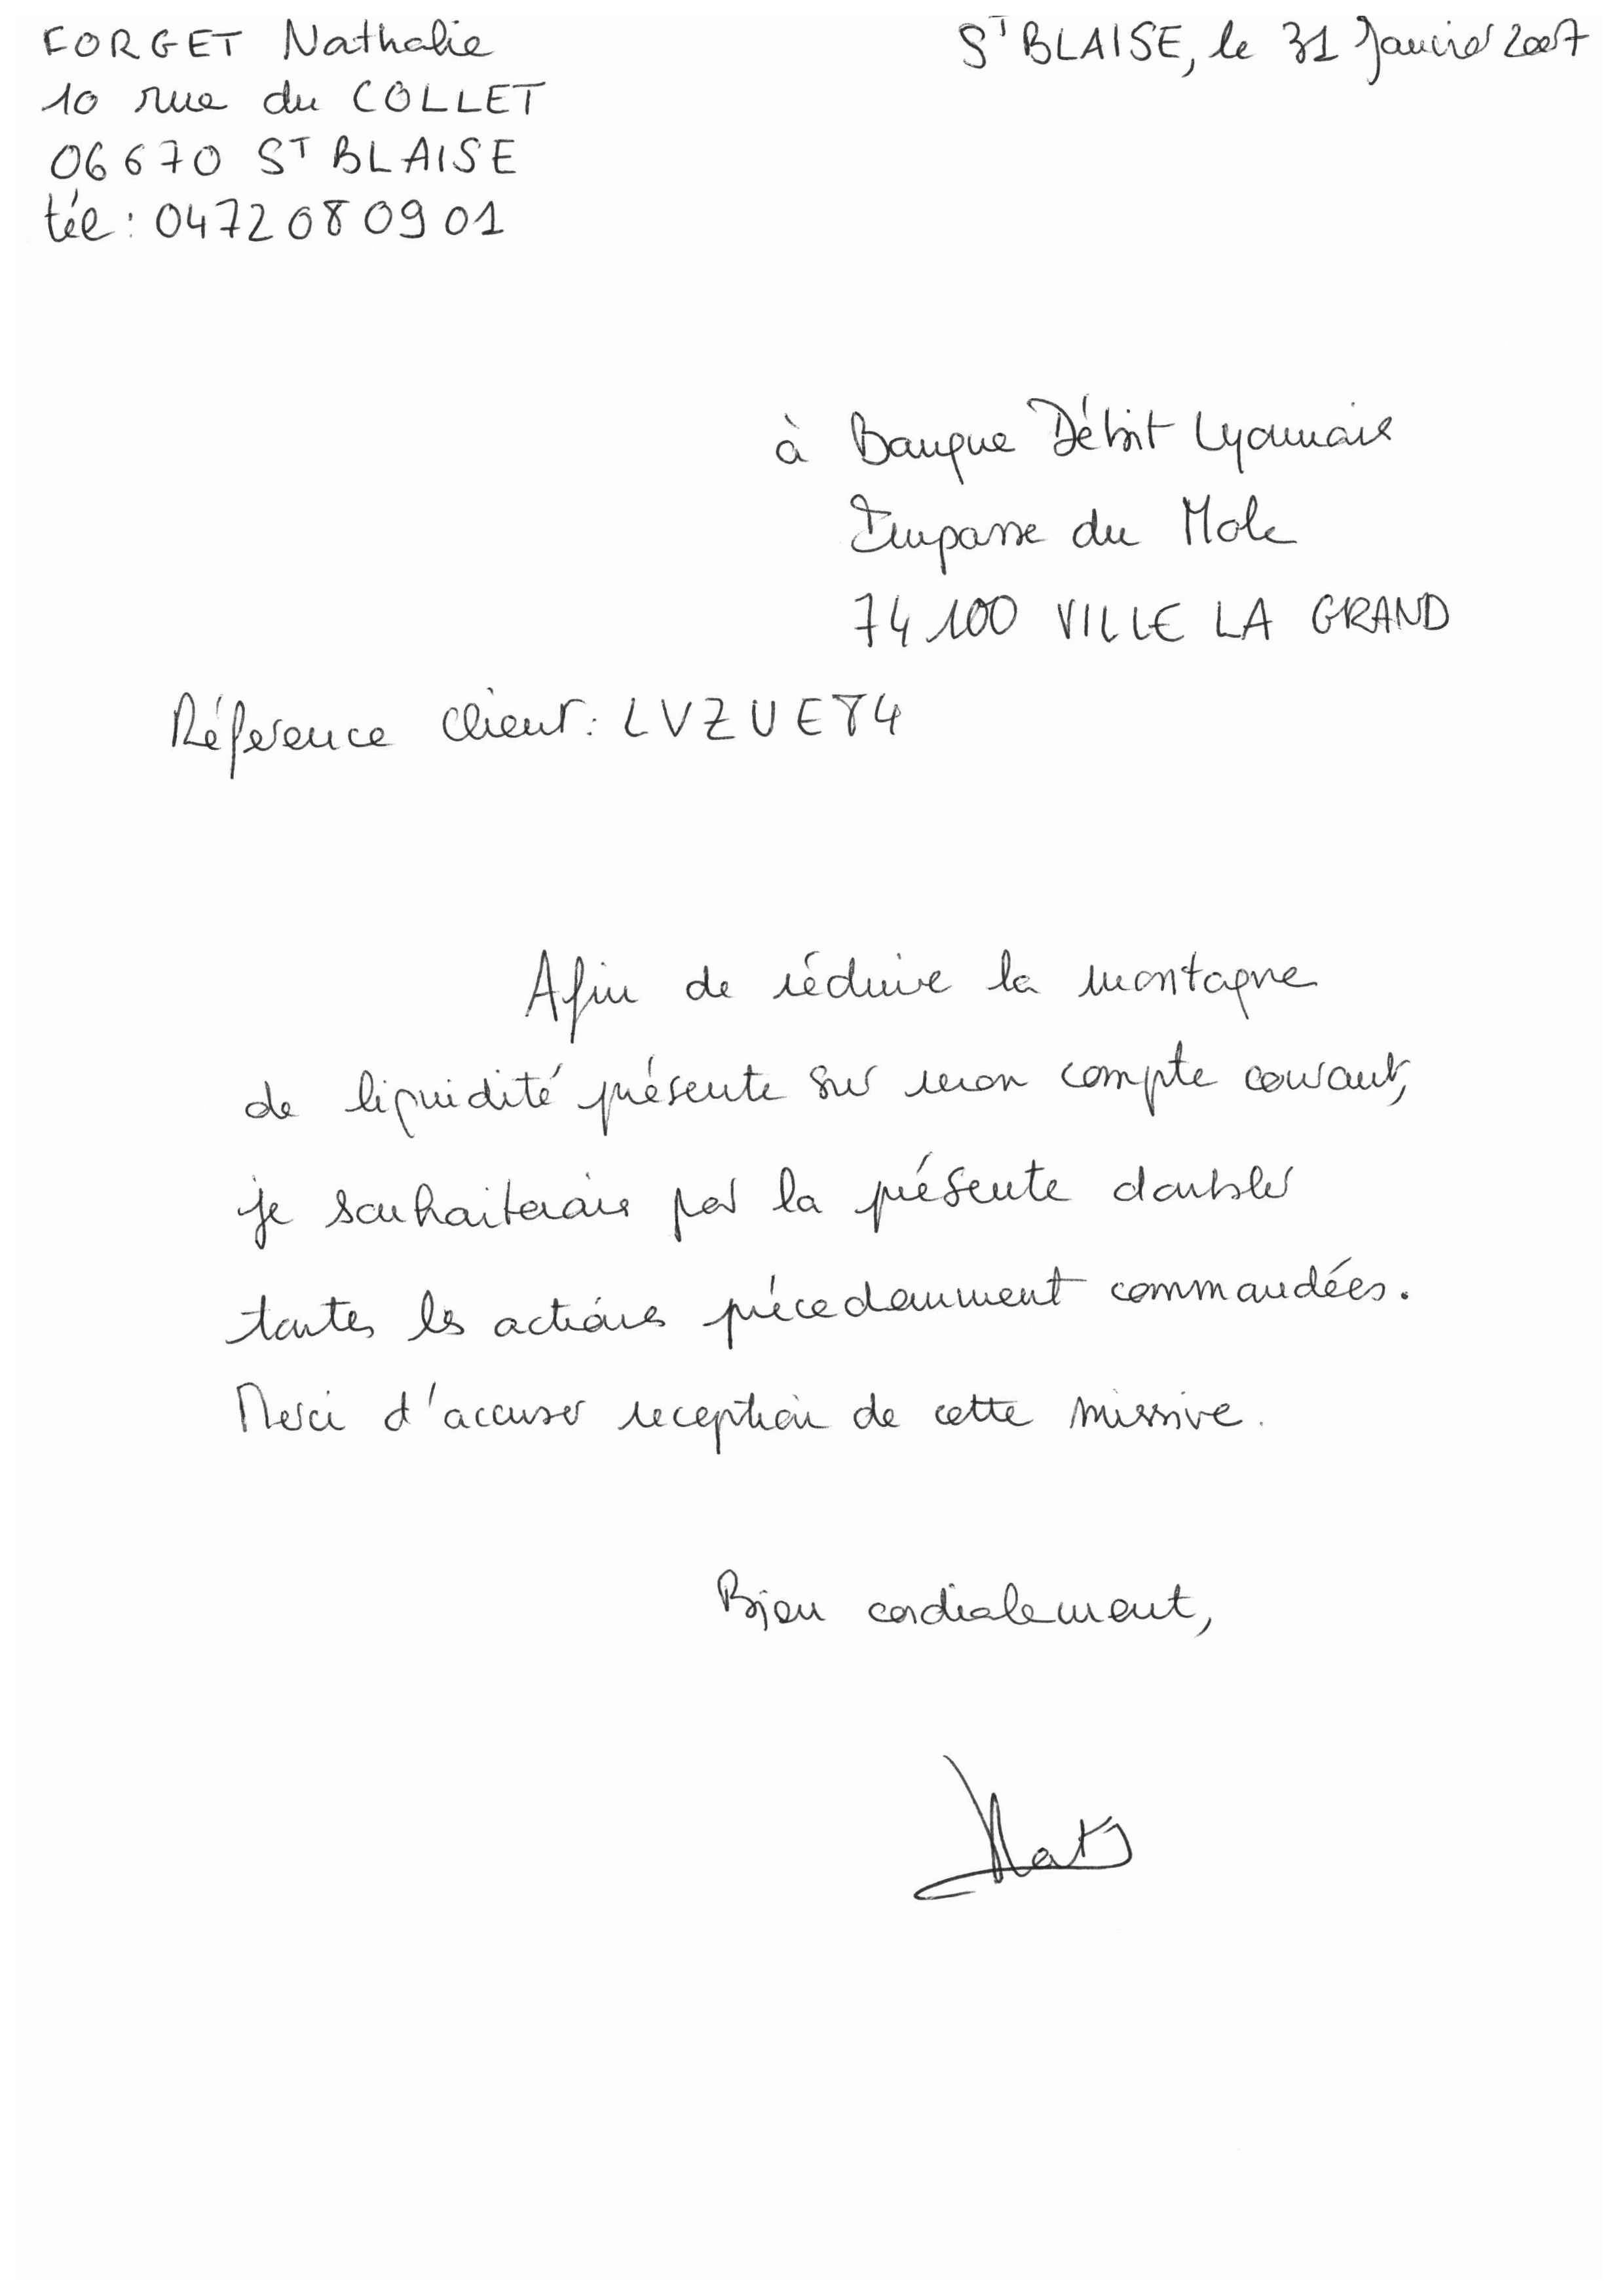 FORGET Nathalie
St BLAISE, le 31 Janvier 2007
10 rue du COLLET
06670 St BLAISE
tél : 0472080901
à Banque Débit Lyonnais
Impasse du Mole
74100 VILLE LA GRAND
Réference client : LVZUET4
Afin de réduire la montagne
de liquidité présente sur mon compte courant,
je souhaiterais par la présente doubler
toutes les actions précedamment commandées.
Merci d'accuser reception de cette missive.
Bien cordialement,